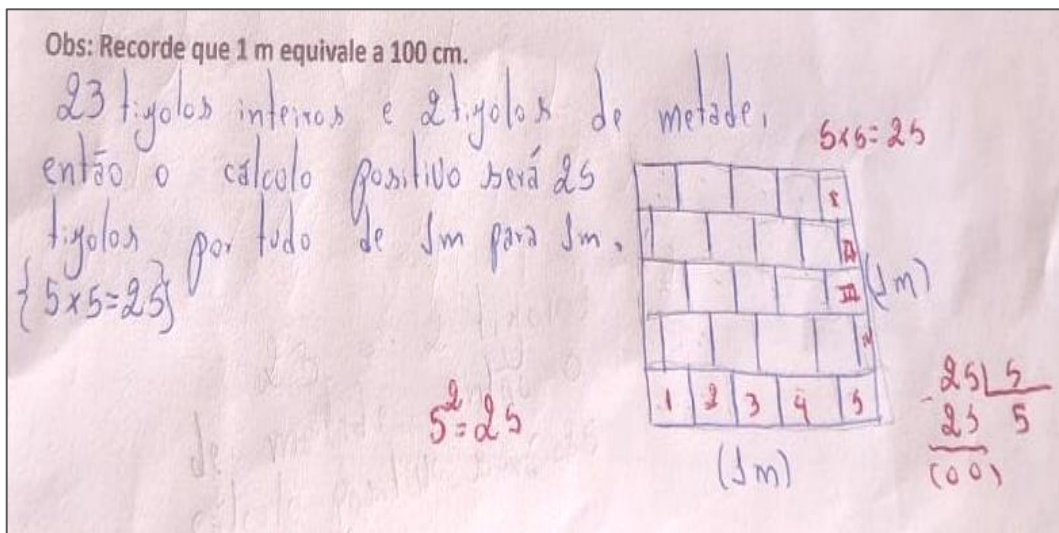 Obs: Recorde que 1 m equivale a 100 cm.
23 tijolos inteiros e 2 tijolos de metade,
então o cálculo positivo será 25
tijolos por tudo de 1m para 1m.
{5x5=25}
5x5=25
I
II
III (1m)
IV
1 2 3 4 5
(1m)
5²=25
25 5
- 25 5
(00)